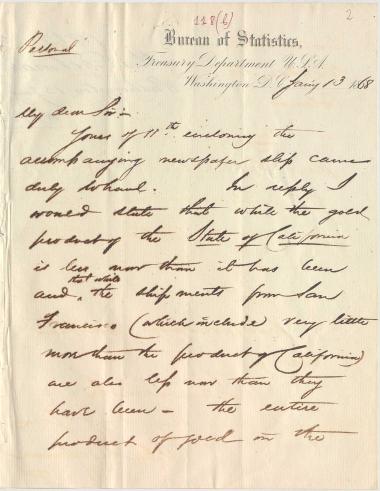 118(b)
2
Personal
Bureau of Statistics,
Treasury Department U.S.A.
Washington D.C. Jany 13 1868
My dear Sir
Yours of 11th enclosing the
accompanying newspaper slip came
duly to hand. In reply I
would state that while the gold
product of the State of California
is less now than it has been
and that while the shipments from San
Francisco (which include very little
more than the product of California)
are also less now than they
have been – the entire
product of gold in the